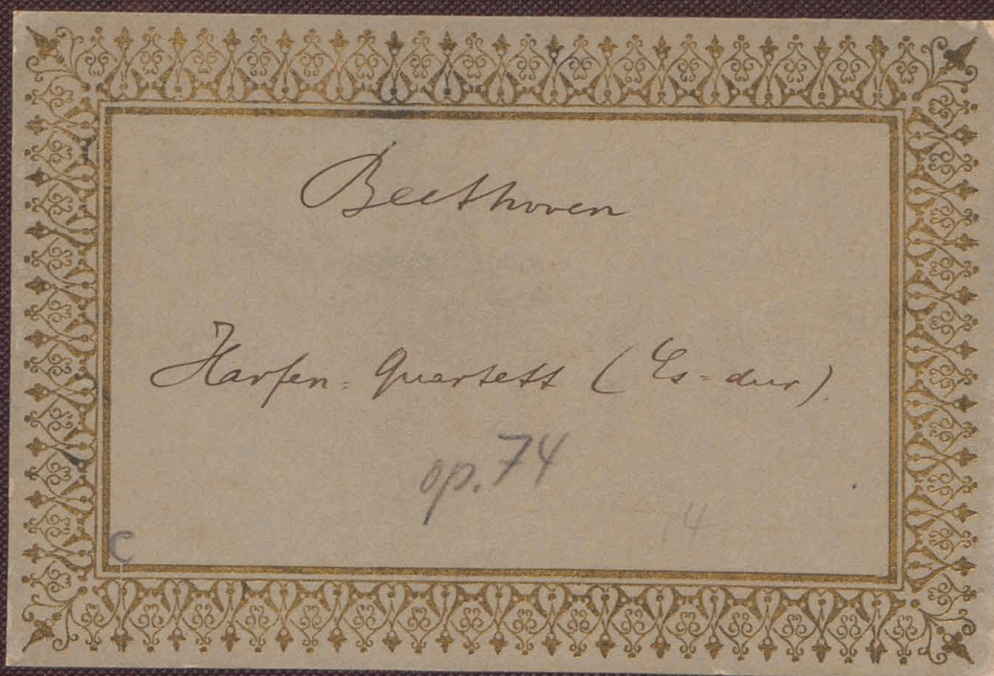 Beethoven
Harfen=Quartett (Es=dur).
op. 74
14
C